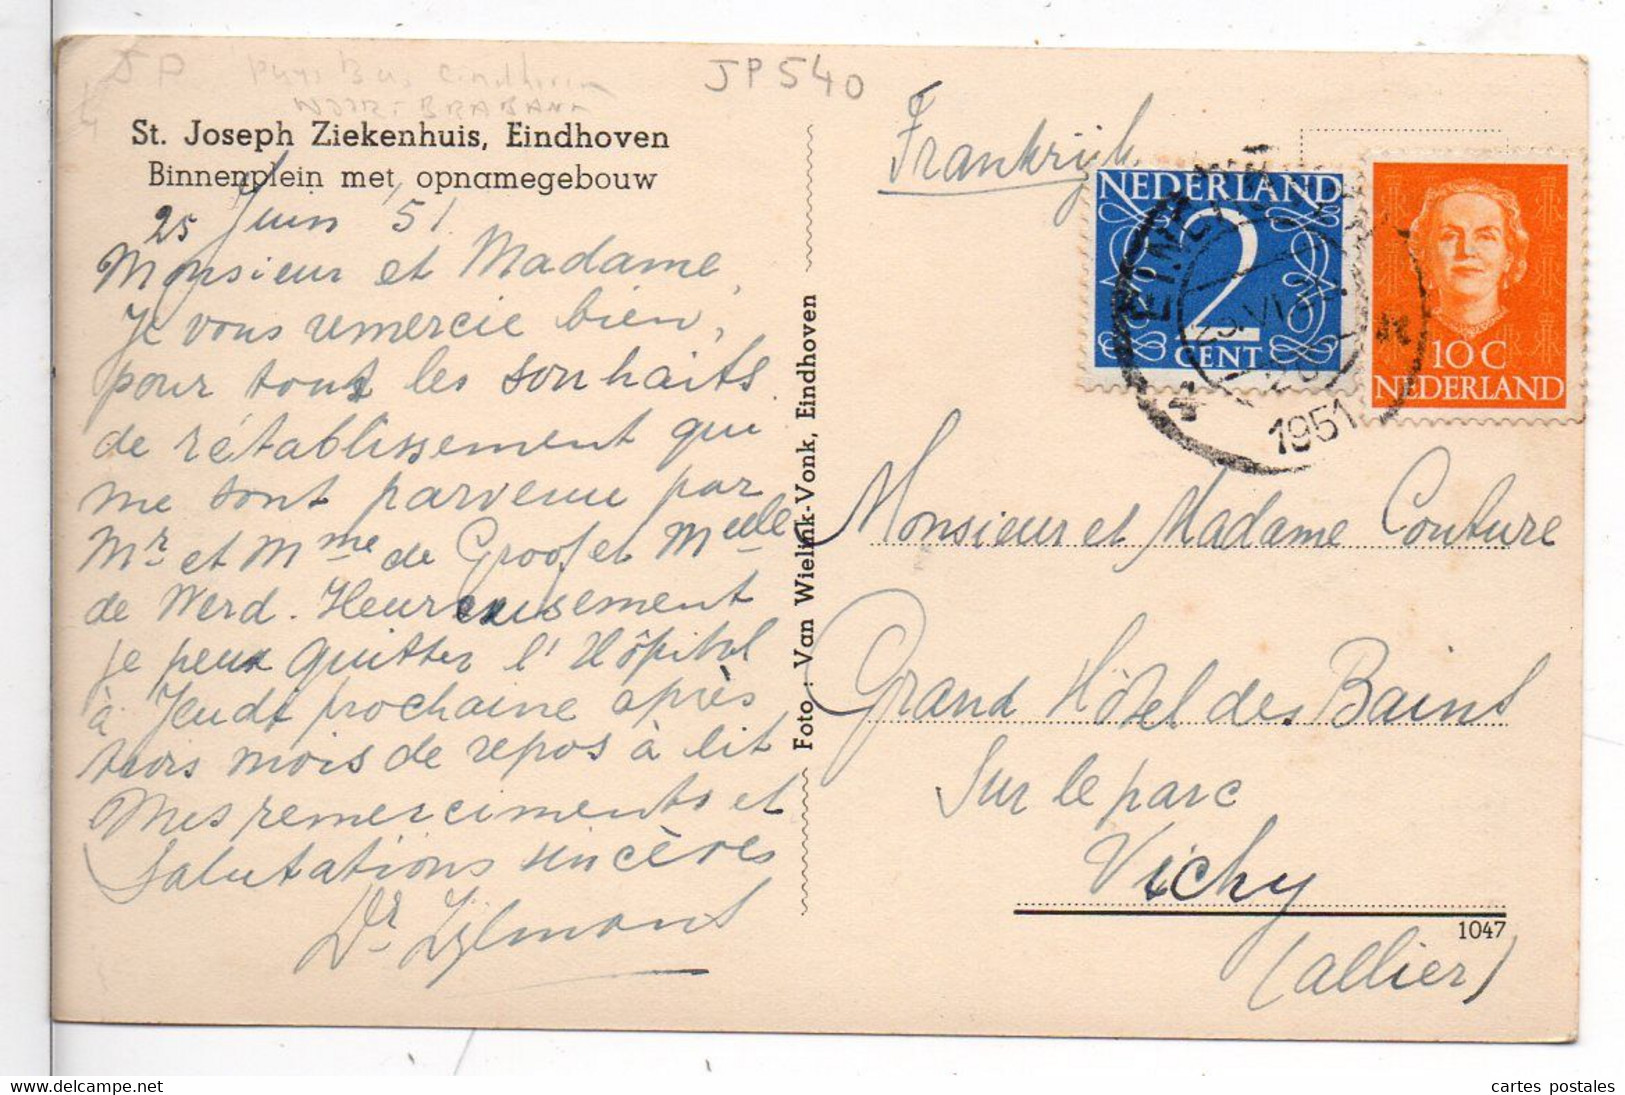 JP
Pays Bas Eindhoven
NOORT BRABANT
JP540
St. Joseph Ziekenhuis, Eindhoven
Binnenplein met opnamegebouw
25 Juin '51.
Monsieur et Madame,
Je vous remercie bien,
pour tous les souhaits
de rétablissement qui
me sont parvenu par
Mr et Mme de Groof et Melle
de Werd. Heureusement
je peux quitter l'Hôpital
à Jeudi prochaine après
trois mois de repos à lit
Mes remerciments et
Salutations sincères
Dr Zijlmans
Foto : Van Wielink-Vonk, Eindhoven
Frankrijk.
NEDERLAND
2
CENT
10 C
NEDERLAND
1951
Monsieur et Madame Couture
Grand Hôtel des Bains
Sur le parc
Vichy
1047
(Allier)
delcampe.net
cartes postales